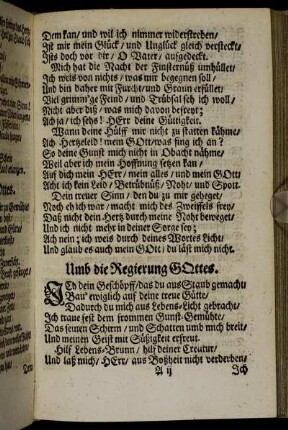 Dem kan/ und wil ich nimmer widerstreben/
Ist mir mein Glück/ und Unglück gleich versteckt/
Ists doch vor dir/ O Vater/ aufgedeckt.
Mich hat die Nacht der Finsternüß umhüllet/
Ich weis von nichts/ was mir begegnen soll/
Und bin daher mit Furcht/ und Graun erfüllet/
Viel grimm'ge Feind/ und Trübsal seh ich woll/
Nicht aber diß/ was mich davon befreyt;
Ich ja/ ich sehs! HErr deine Gütigkeit.
Wann deine Hülff mir nicht zu statten kähme/
Ich Hertzeleid! mein GOtt/ was fing ich an?
So deine Gunst mich nicht in Obacht nähme/
Weil aber ich mein Hoffnung setzen kan/
Auf dich mein HErr/ mein alles/ und mein GOtt/
Acht ich kein Leid/ Betrübnüß/ Noht/ und Spott.
Dein treuer Sinn/ den du zu mir geheget/
Noch eh ich war/ macht mich des Zweiffels frey/
Daß nicht dein Hertz durch meine Noht beweget/
Und ich nicht mehr in deiner Sorge sey;
Ach nein; ich weis durch deines Wortes Licht/
Und glaub es auch mein GOtt/ du läst mich nicht.
Umb die Regierung GOttes.
ICh dein Geschöpff/ das du aus Staub gemacht/
Bau' ewiglich auf deine treue Gütte/
Dadurch du mich aus Lebens-Licht gebracht/
Ich traue fest dem frommen Gunst-Gemühte/
Das seinen Schirm/ und Schatten umb mich breit/
Und meinen Geist mit Süßigkeit erfreut.
Hilf Lebens-Brunn/ hilf deiner Creatur/
Und laß mich/ HErr/ aus Boßheit nicht verderben/
A ij Ich